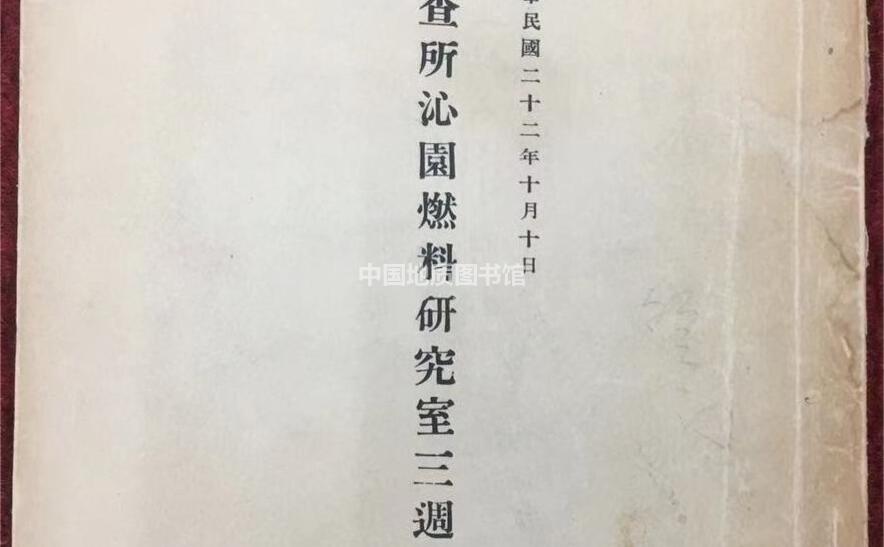 民國二十二年十月十日
查所沁園燃料研究室三週
中国地质图书馆